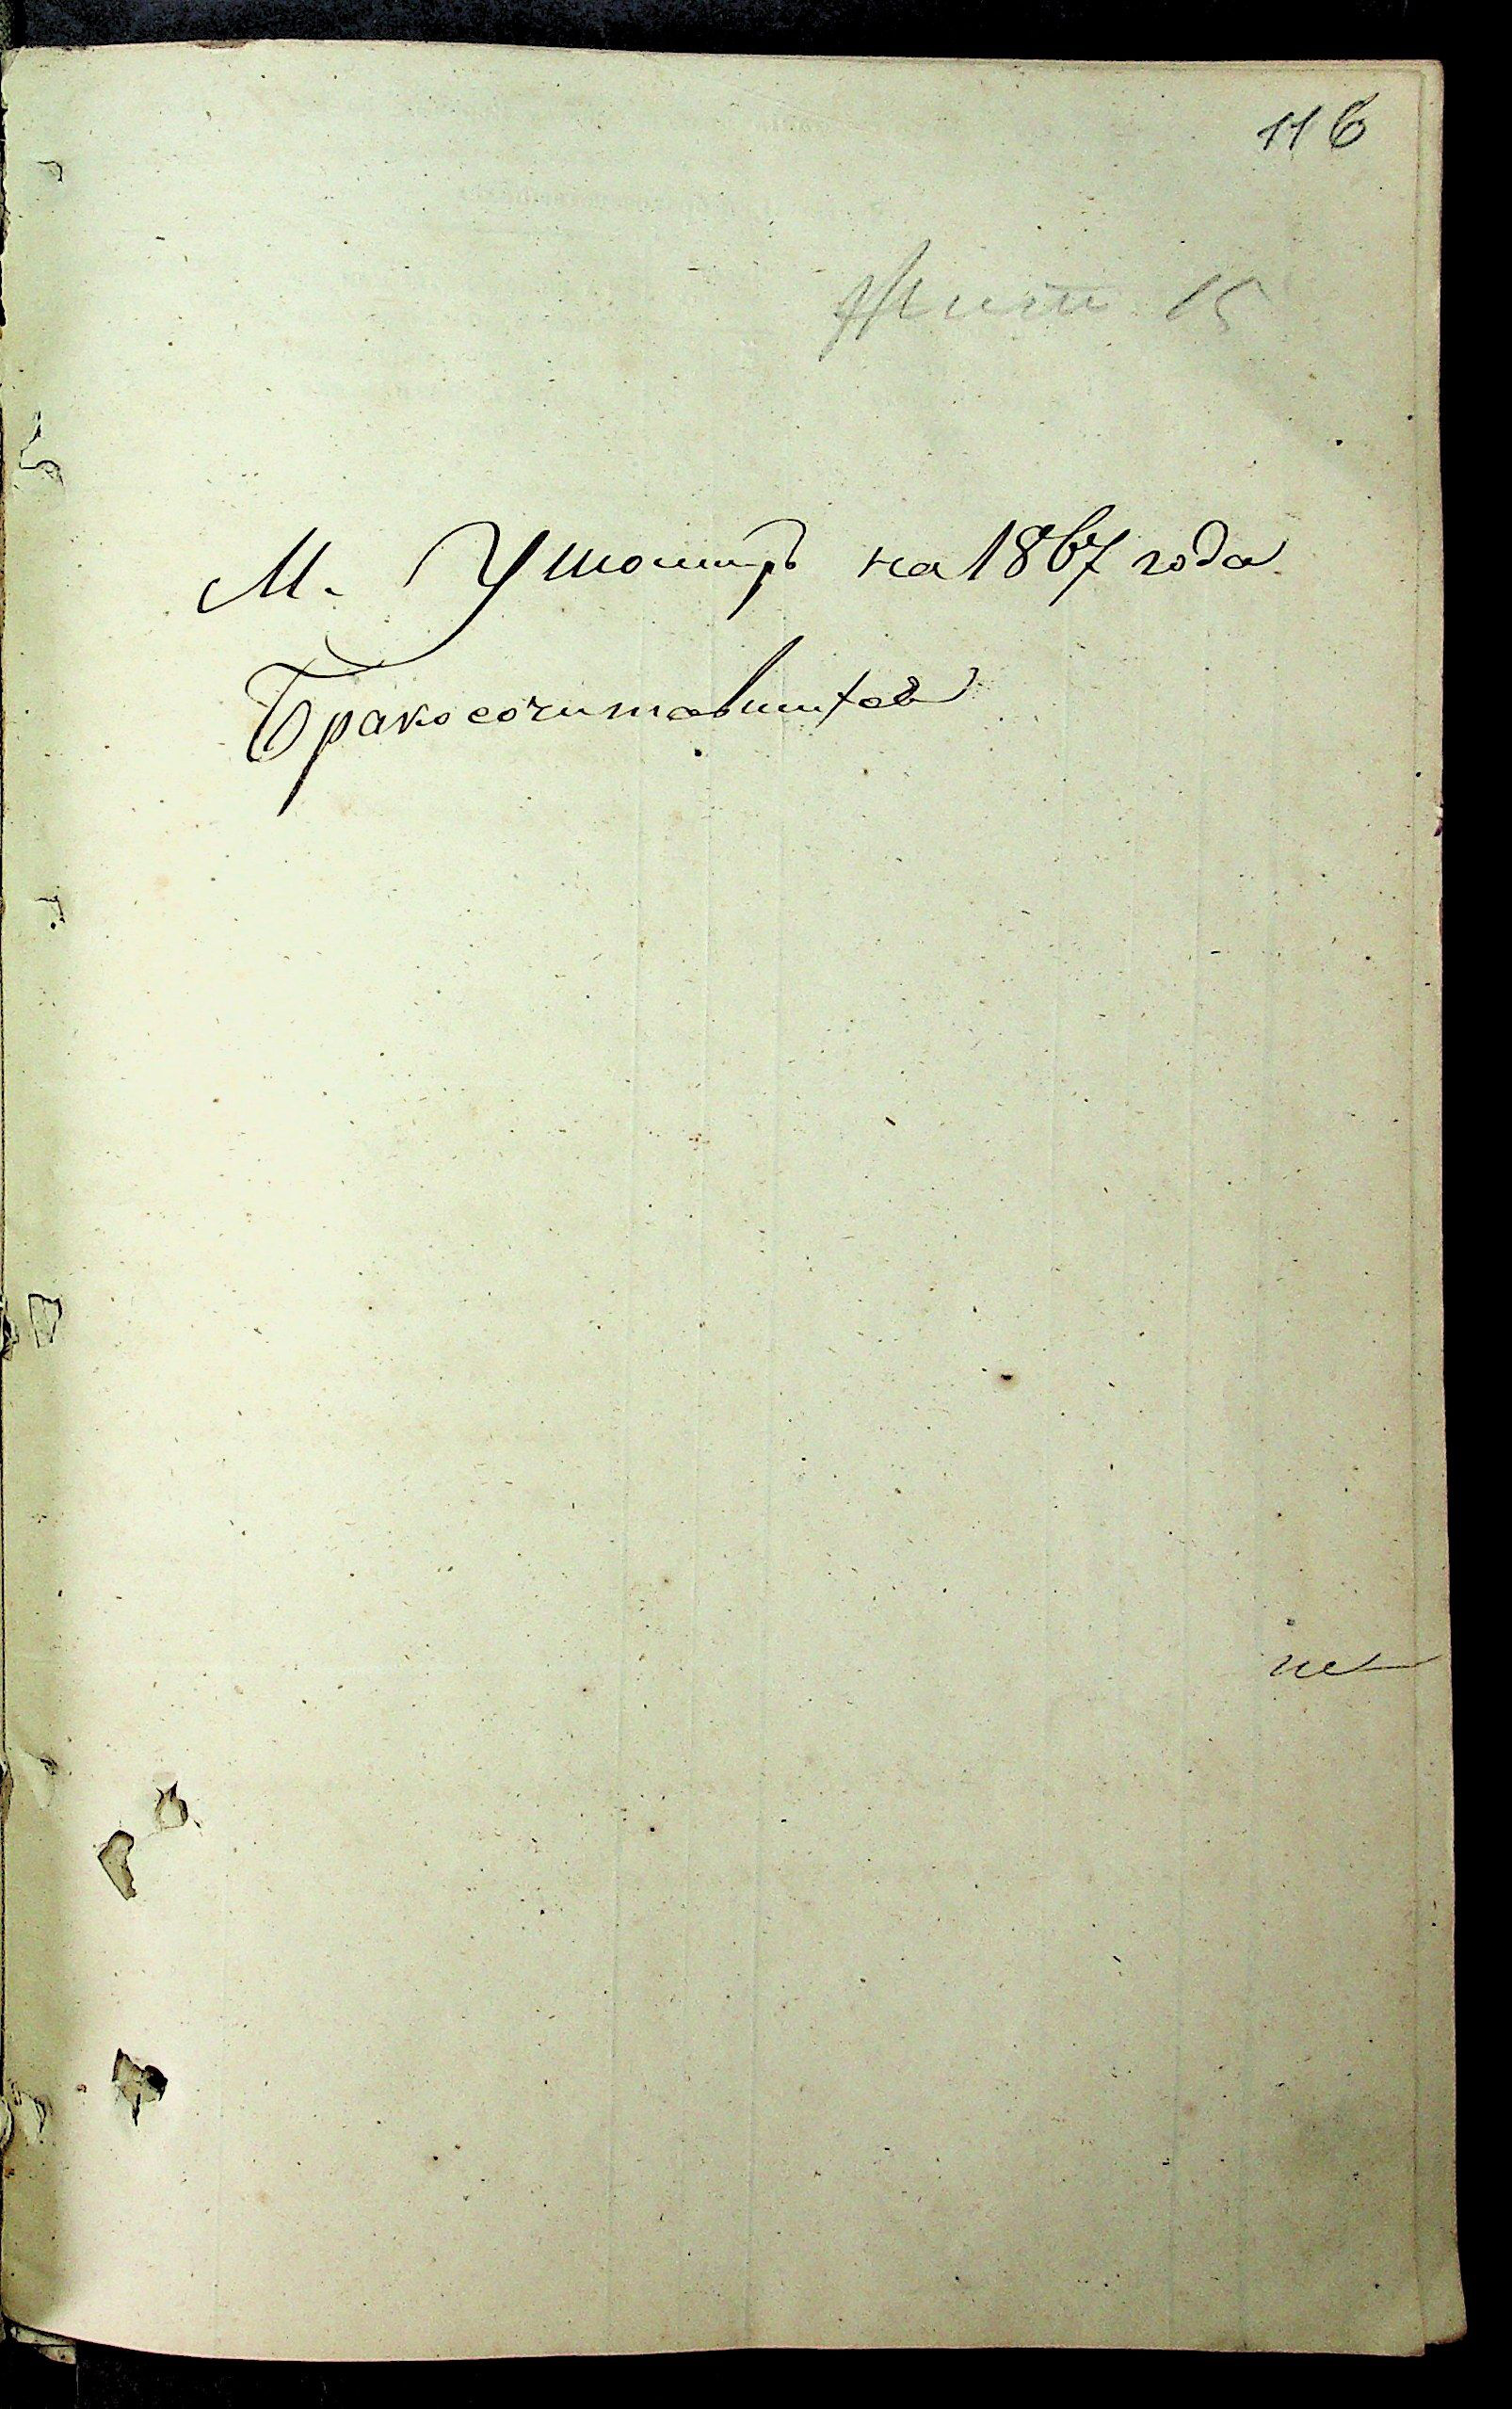 116
15
М. Ушомиръ на 1867 года
Бракосочитавшихся